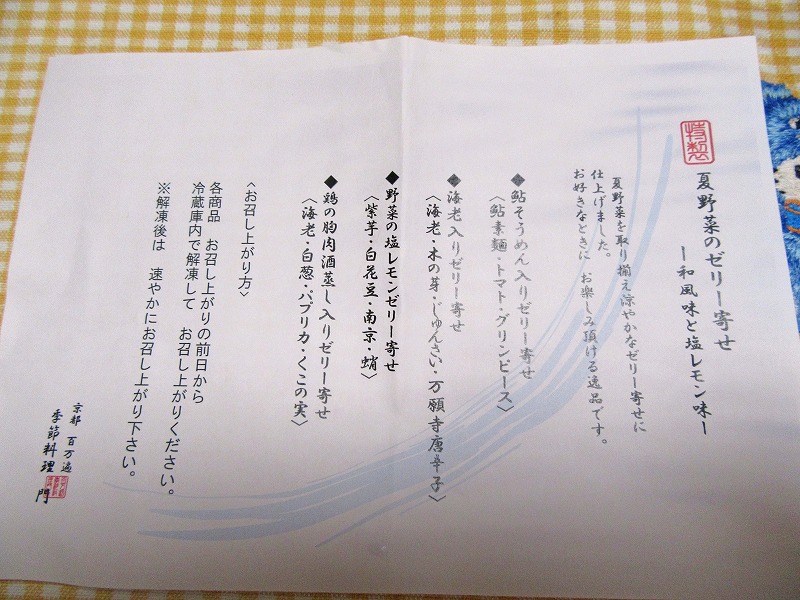 特製
夏野菜のゼリー寄せ
ー和風味と塩レモン味ー
夏野菜を取り揃え涼やかなゼリー寄せに
仕上げました。
お好きなときに お楽しみ頂ける逸品です。
◆鮎そうめん入りゼリー寄せ
〈鮎素麺・トマト・グリンピース〉
◆海老入りゼリー寄せ
〈海老・木の芽・じゅんさい・万願寺唐辛子〉
◆野菜の塩レモンゼリー寄せ
〈紫芋・白花豆・南京・蛸〉
◆鶏の胸肉酒蒸し入りゼリー寄せ
〈海老・白葱・パプリカ・くこの実〉
〈お召し上がり方〉
各商品 お召し上がりの前日から
冷蔵庫内で解凍して お召し上がりください。
※解凍後は 速やかにお召し上がり下さい。
京都 百万遍
季節料理 門